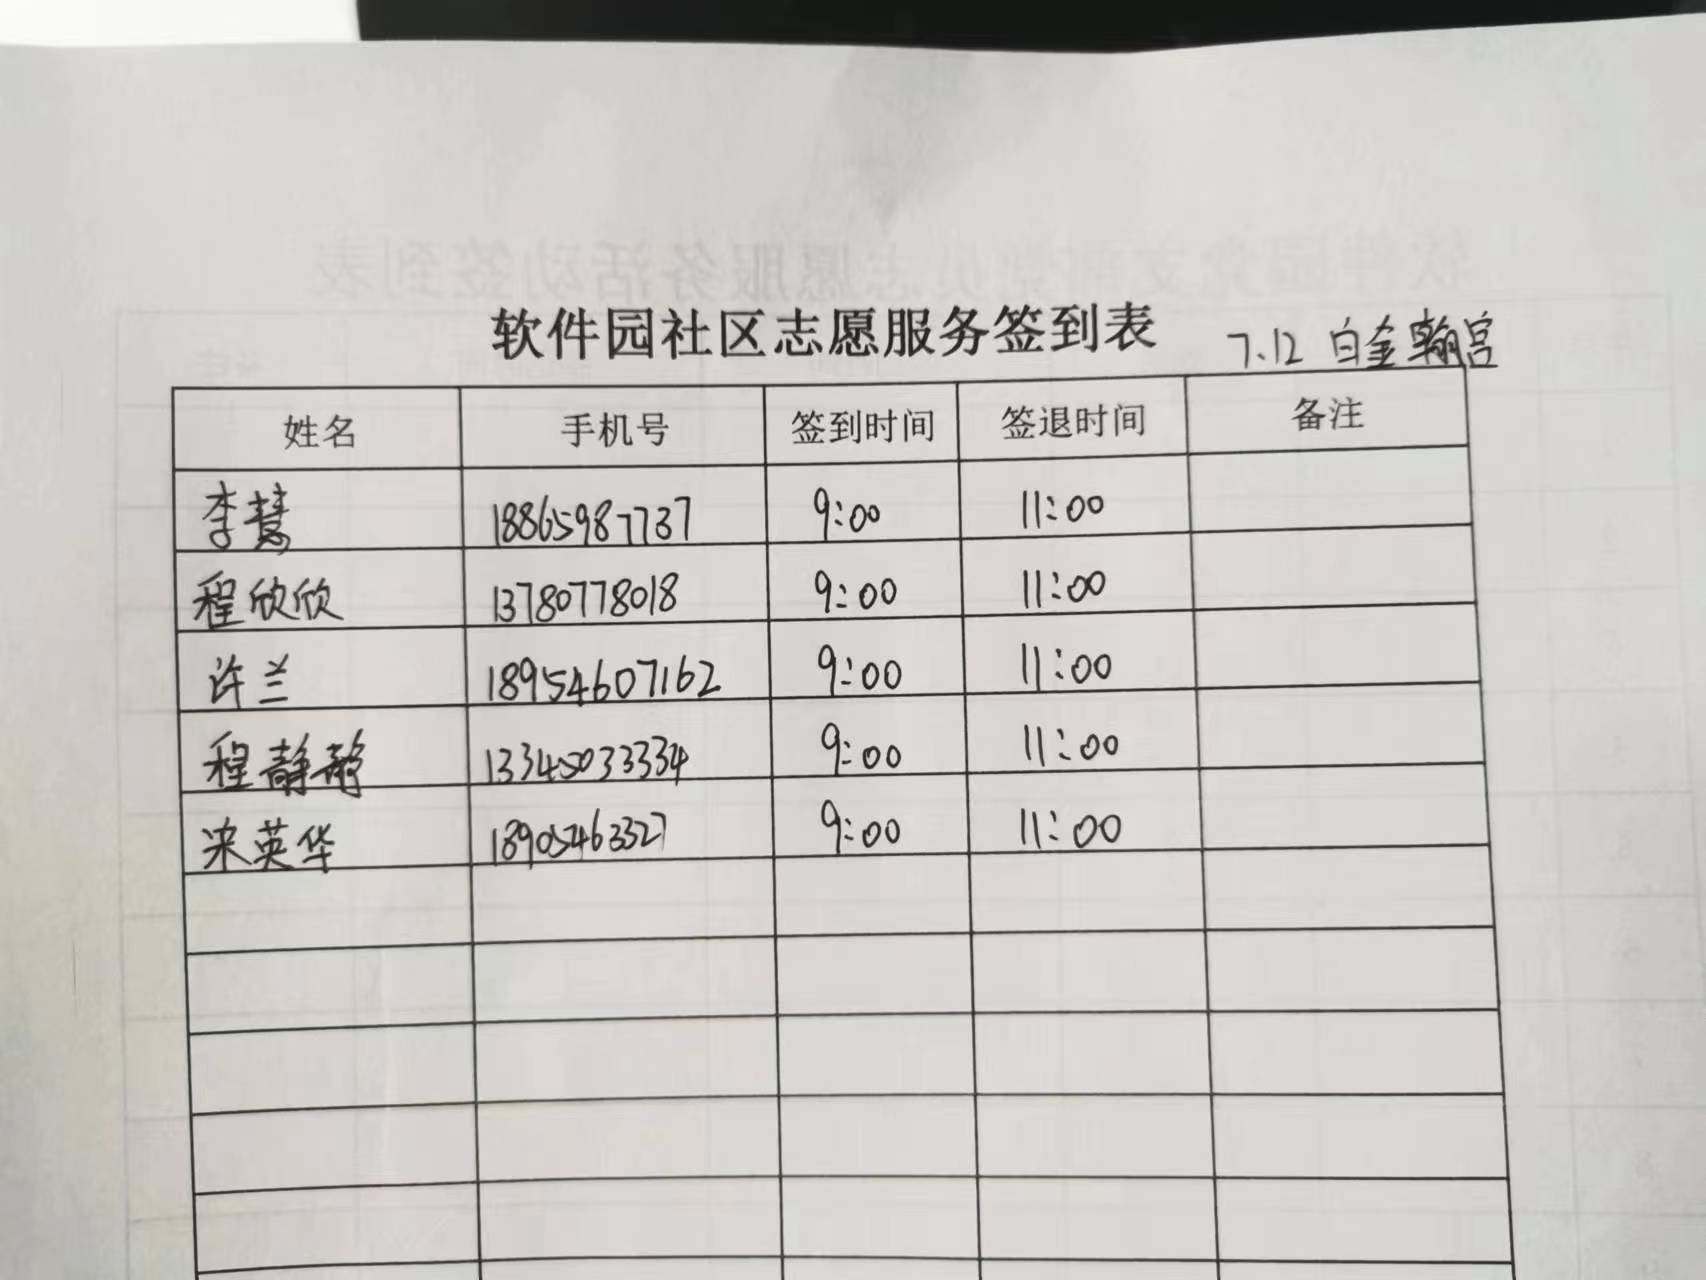 软件园社区志愿服务签到表 7.12 白金翰宫
姓名 手机号 签到时间 签退时间 备注
李慧 18865987737 9:00 11:00
程欣欣 13780778018 9:00 11:00
许兰 18954607162 9:00 11:00
程静静 13345033334 9:00 11:00
宋英华 18905463327 9:00 11:00